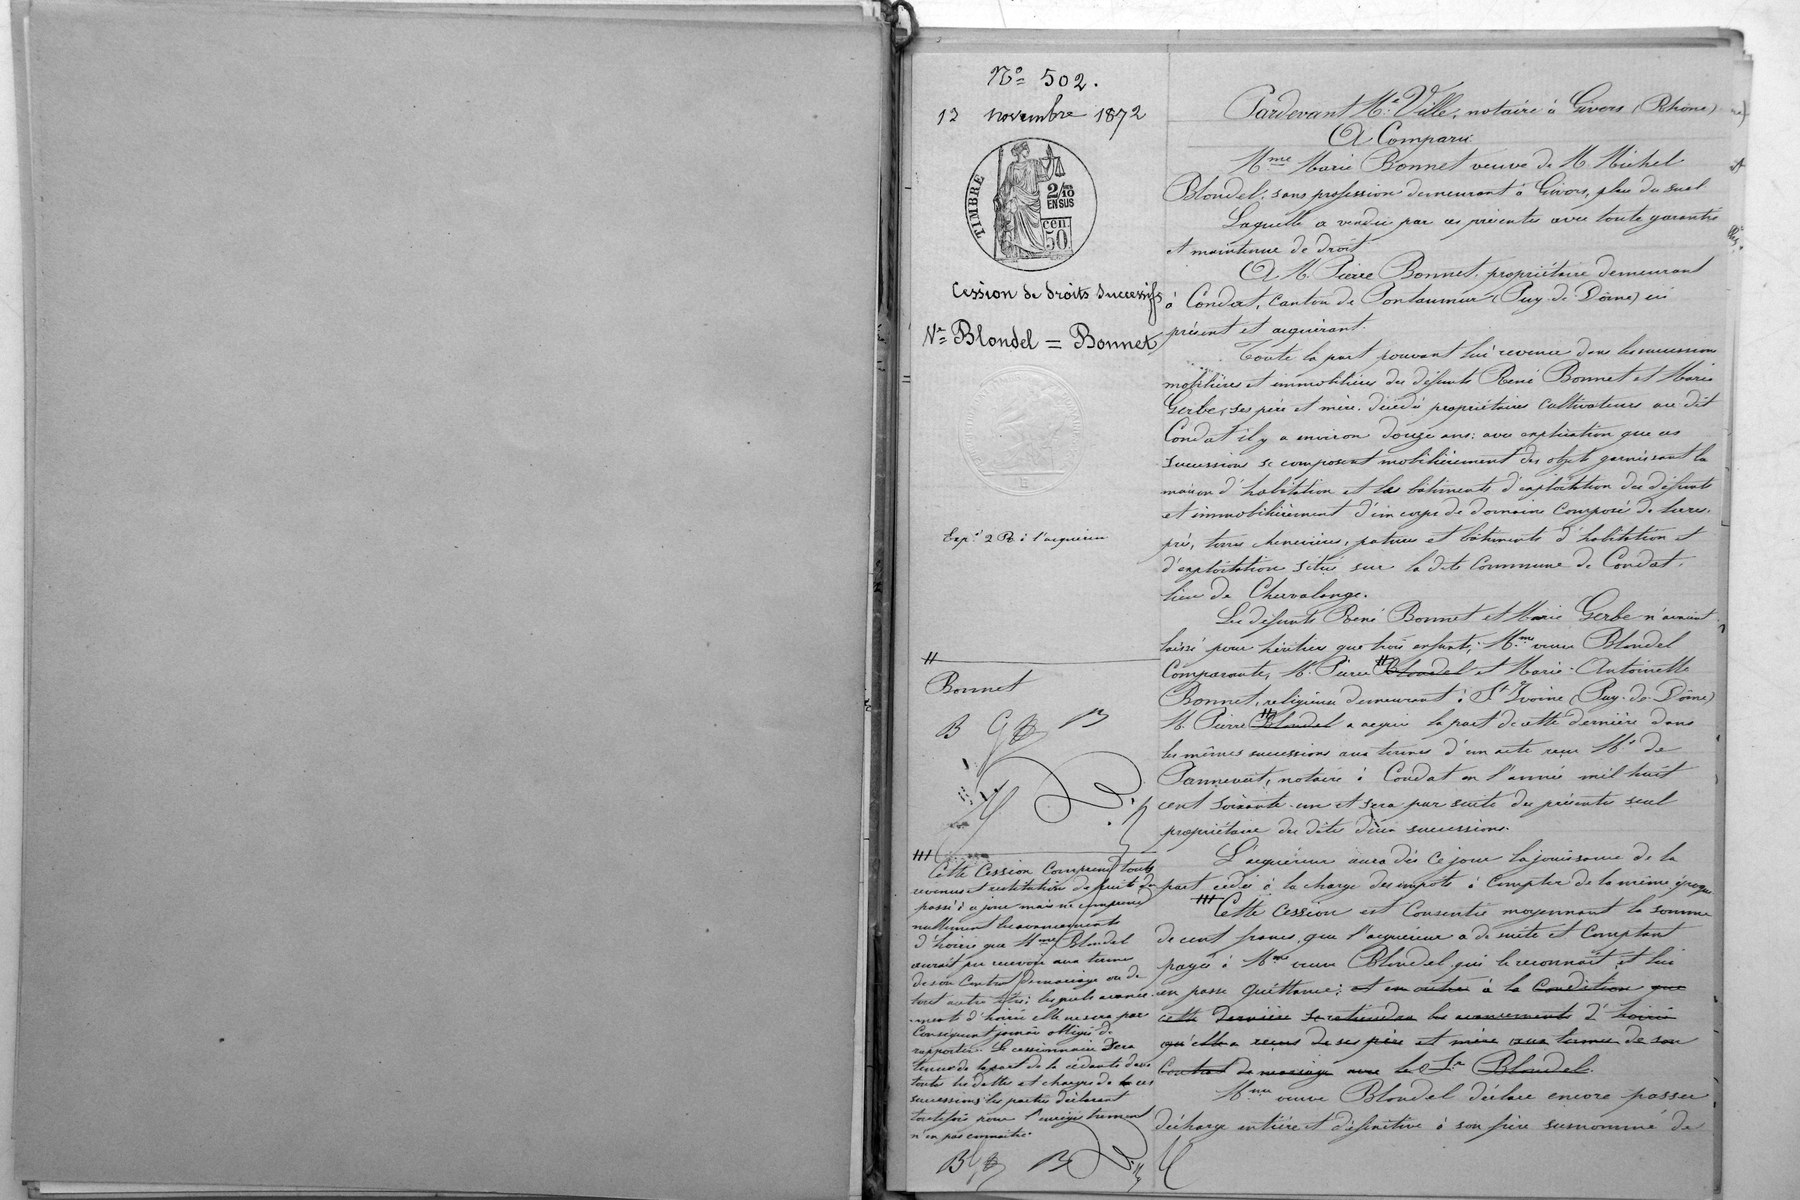 Nº 502.
13 novembre 1872
TIMBRE
2/10
EN SUS
cen.
50
Cession de droits successifs
Vᵉ Blondel = Bonnet
Exp.ⁿ 2 R. à l'acquéreur
#
Bonnet
###
Cette Cession Comprend touts
revenus et restitution de fruits du
passé à ce jour mais ne comprend
nullement les avancements
d'hoirie que Mme Blondel
aurait pu recevoir aux termes
de son Contrat de mariage ou de
tout autre titre; lesquels avance-
-ments d'hoirie elle ne sera par
Conséquent jamais obligée de
rapporter. Le cessionnaire sera
tenu de la part de la cédante dans
toutes les dettes et charges de ces
successions les parties déclarant
toutefois pour l'enregistrement
n'en pas connaître.
Pardevant Me Ville, notaire à Givors (Rhône)
A Comparu
Mme Marie Bonnet veuve de M. Michel
Blondel, sans profession demeurant à Givors, place du suel
Laquelle a vendu par ces présentes avec toute garantie
et maintenue de droit
A M. Pierre Bonnet, propriétaire demeurant
à Condat, Canton de Pontaumur (Puy-de-Dôme) ici
présent et acquérant.
Toute la part pouvant lui revenir dans les successions
mobilières et immobilières des défunts René Bonnet et Marie
Gerbe, ses père et mère, décédés propriétaires cultivateurs au dit
Condat il y a environ douze ans; avec explication que ces
successions se composent mobilièrement des objets garnissant la
maison d'habitation et les bâtiments d'exploitation des défunts
et immobilièrement d'un corps de domaine Composé de terres,
prés, terres chenevières, patures et bâtiments d'habitation et
d'exploitation situé sur la dite Commune de Condat,
lieu de Chervalange.
Les défunts René Bonnet et Marie Gerbe n'avaient
laissé pour héritiers que trois enfants; Mme veuve Blondel
Comparante, M. Pierre # Blondel et Marie-Antoinette
Bonnet, religieuse demeurant à St Yvoine (Puy-de-Dôme)
M. Pierre # Blondel a acquis la part de cette dernière dans
les mêmes successions aux termes d'un acte reçu Me de
Pannevert, notaire à Condat en l'année mil huit
cent soixante-un et sera par suite des présentes seul
propriétaire des dites deux successions.
L'acquéreur aura dès ce jour la jouissance de la
part cédée à la charge des impôts à Compter de la même époque
### Cette Cession est Consentie moyennant la somme
de cent francs, que l'acquéreur a de suite et Comptant
payée à Mme veuve Blondel, qui le reconnaît et lui
en passe quittance; et en outre à la Condition que
cette dernière se retiendra les avancements d'hoirie
qu'elle a reçus de ses père et mère aux termes de son
Contrat de mariage avec le Sr Blondel.
Mme veuve Blondel déclare encore passer
décharge entière et définitive à son frère susnommé de